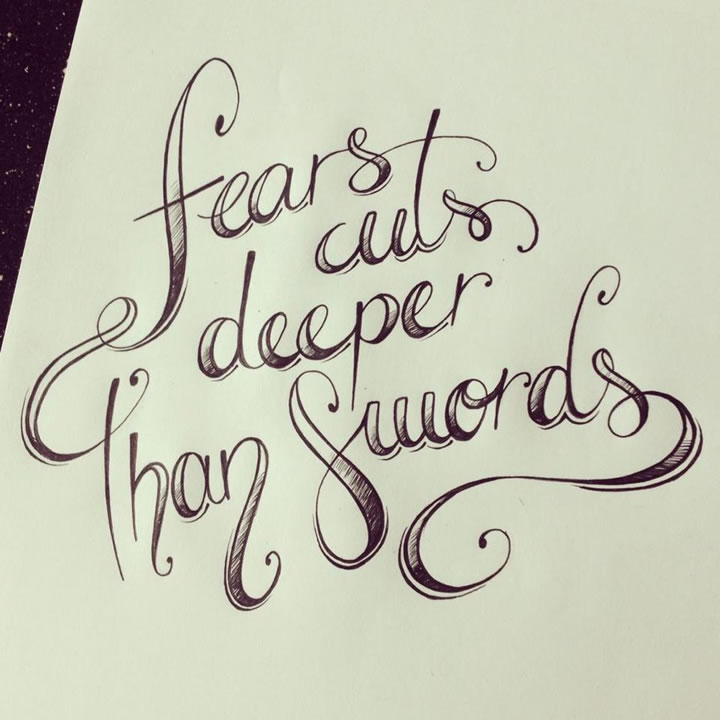 fears
cuts
deeper
Than Swords